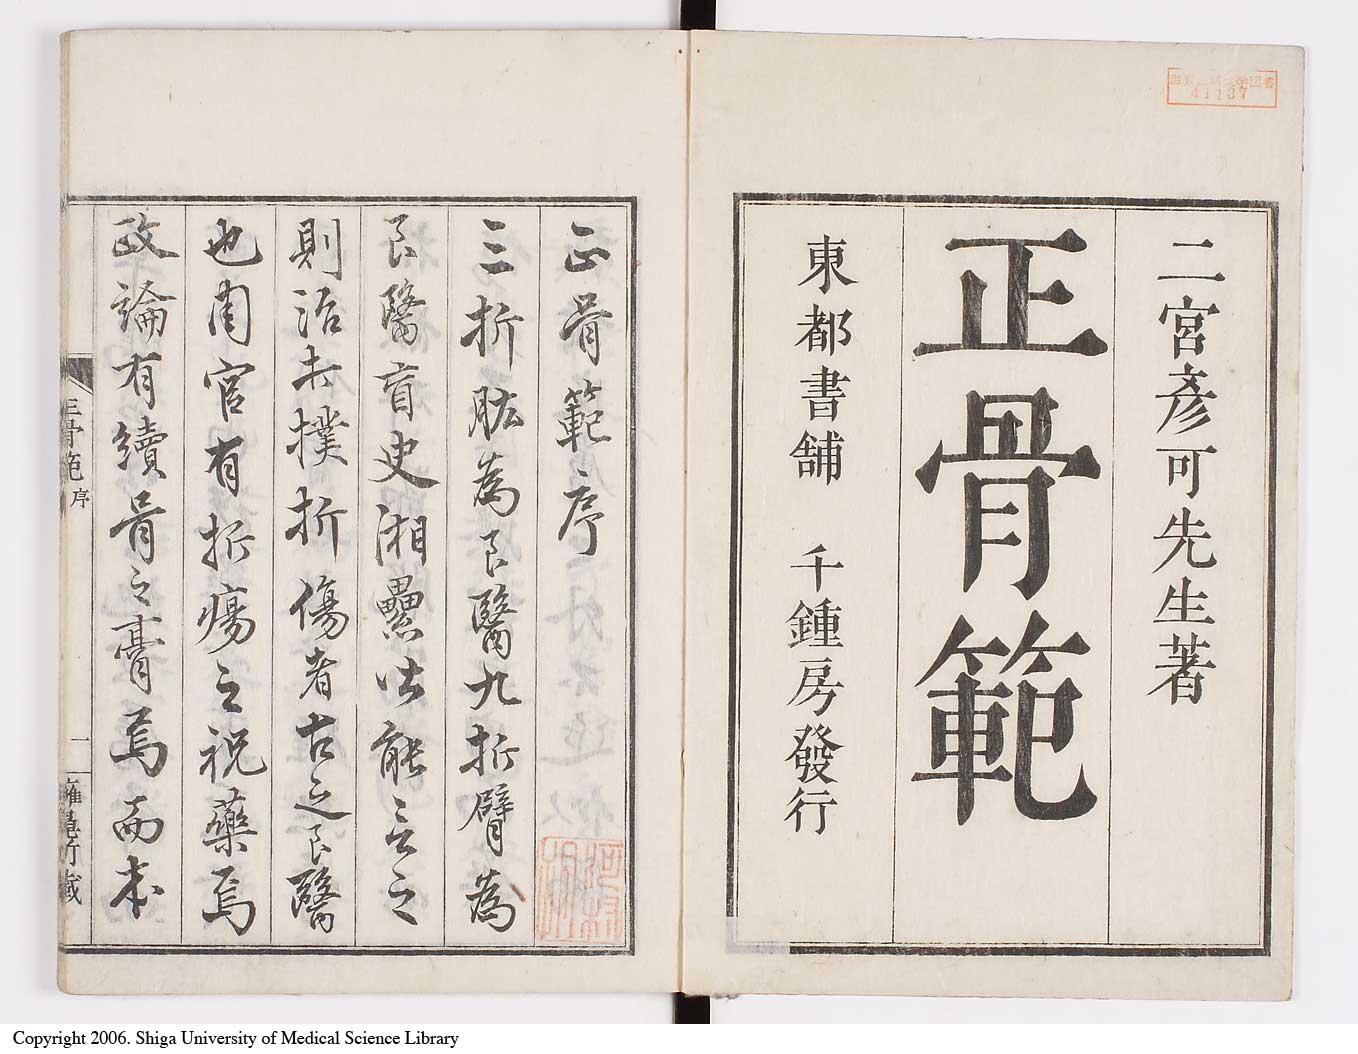 二宮彥可先生著
正骨範
東都書舗 千鍾房發行
41137
正骨範序
三折肱為良醫九折臂為
良醫盲史湘纍皆能言之
則治夫撲折傷者古之良醫
也周官有折瘍之祝藥焉
政論有續骨之膏焉而本
正骨範 序
一
藏
Copyright 2006. Shiga University of Medical Science Library